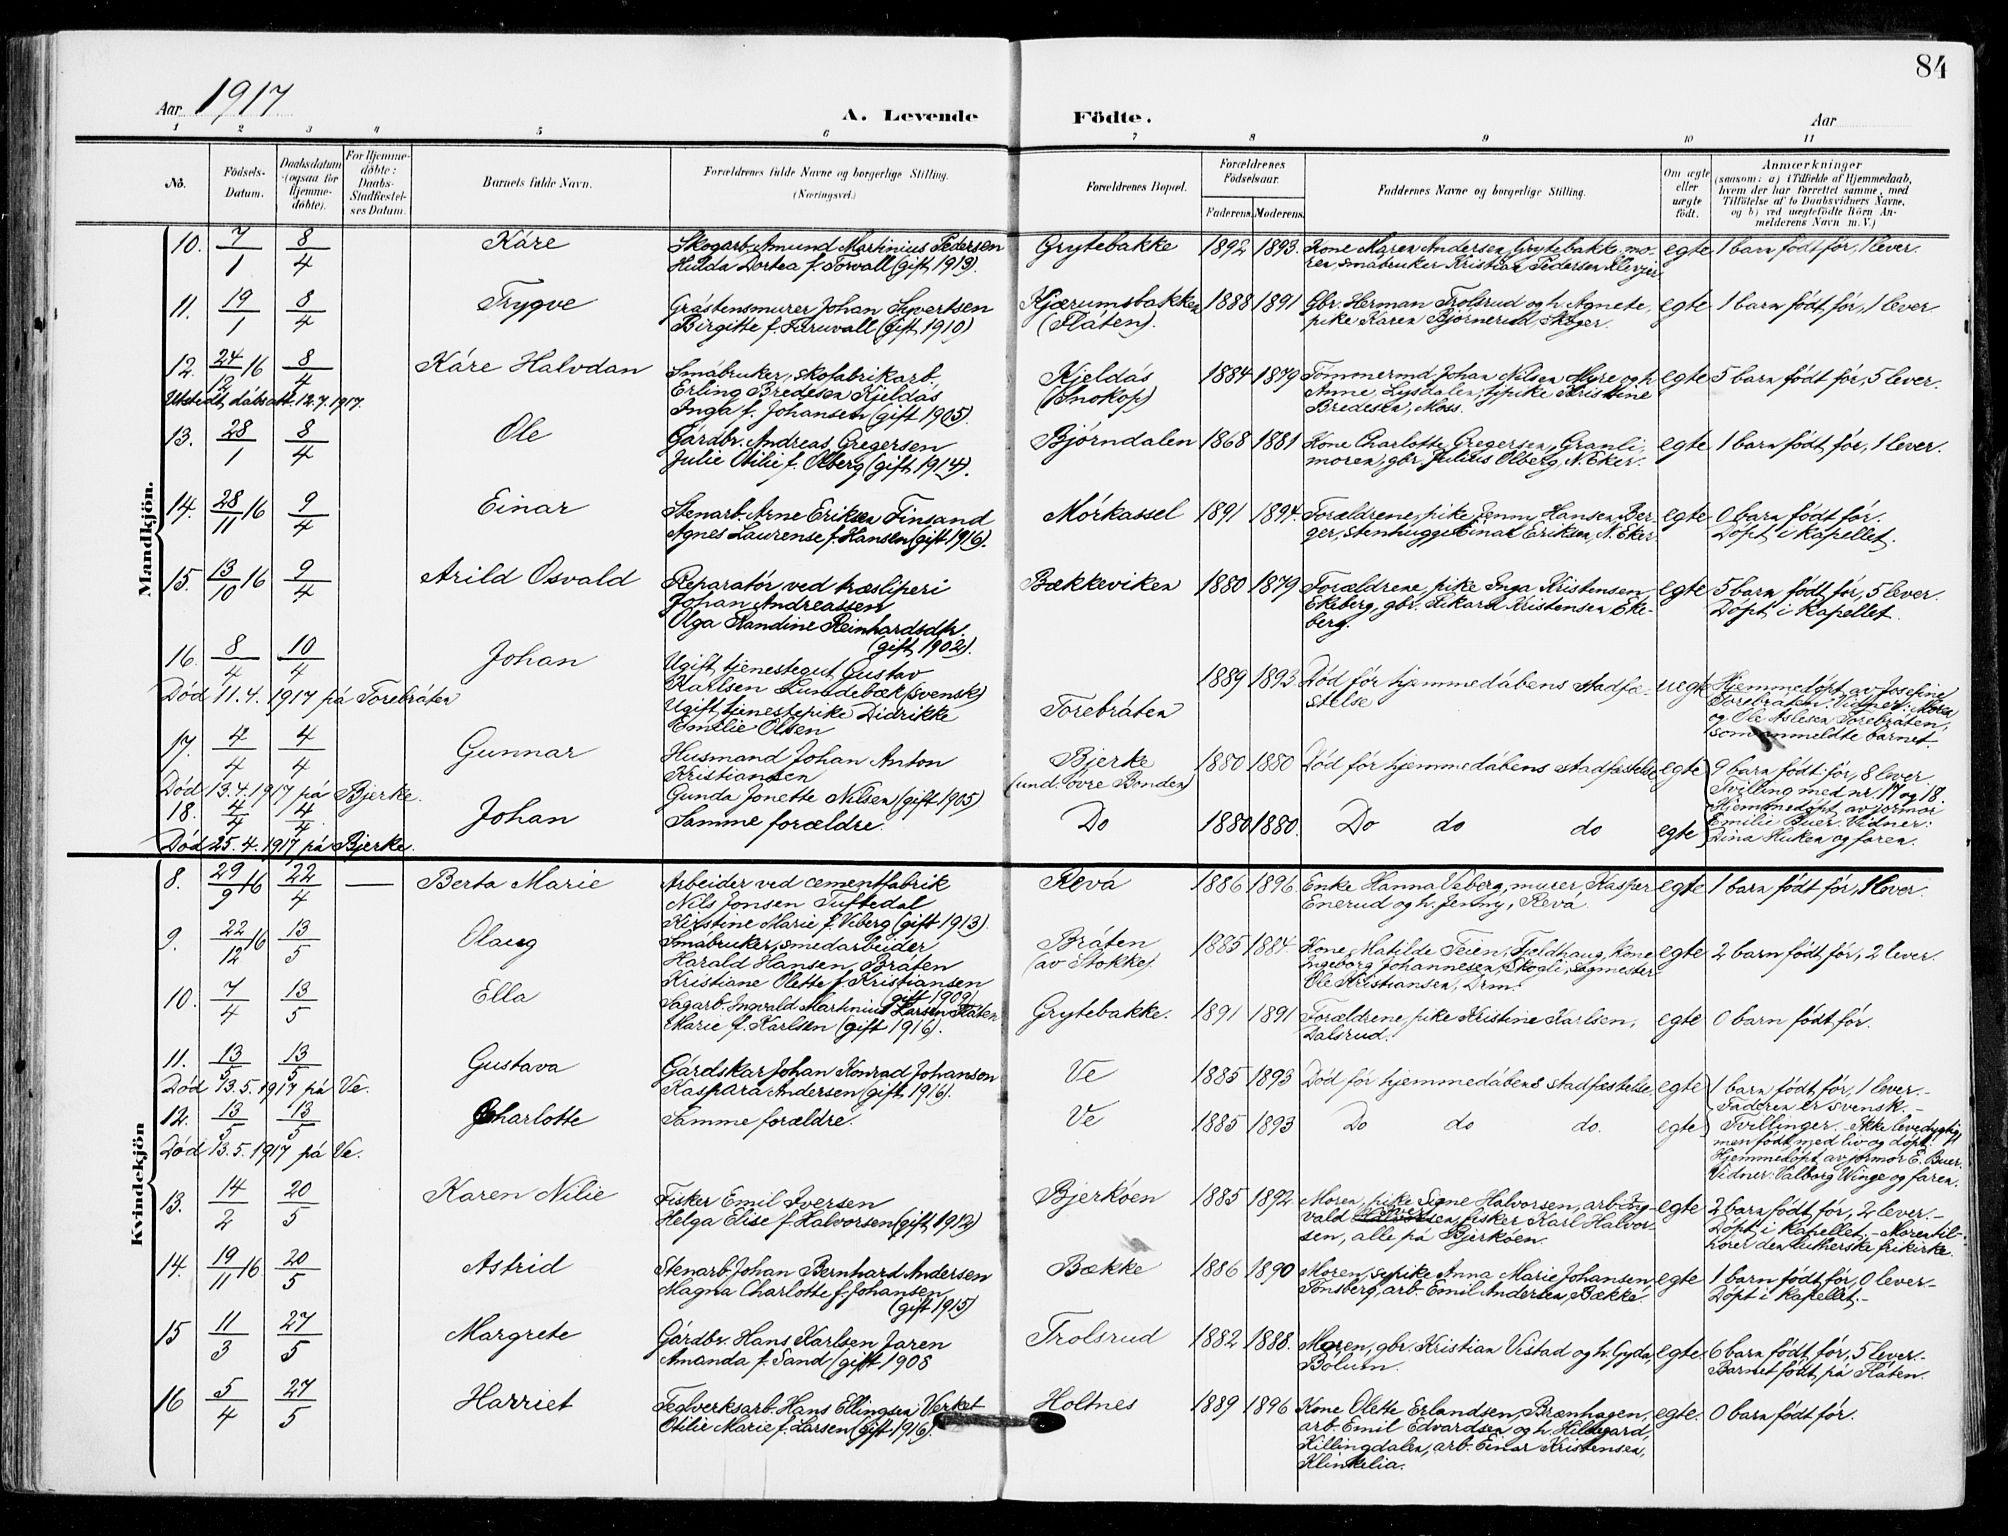 84
Aar 1917
A. Levende Födte.
Aar
1 2 3 4 5 6 7 8 9 10 11
No.
Födsels-Datum.
Daabsdatum (ogsaa for Hjemme-döbte).
For Hjemme-döbte: Daabs-Stadfæstel-ses Datum.
Barnets fulde Navn.
Forældrenes fulde Navne og borgerlige Stilling.
(Næringsvei.)
Forældrenes Bopæl.
Forældrenes Födselsaar.
Faderens. Moderens.
Faddernes Navne og borgerlige Stilling.
Om ægte eller uægte födt.
Anmærkninger
(saasom: a) i Tilfælde af Hjemmedaab,
hvem der har forrettet samme, med
Tilföielse af to Daabsvidners Navne.
og b) ved uægtefödte Börn An-
melderens Navn m. V.)
Mandkjön.
10. 7/1 8/4 Kåre
Skogarb. Amund Martinius Pedersen
Hulda Dortea f. Torvall (gift 1913).
Grytebakke 1892 1893.
Kone Maren Andersen, Grytebakke, mo-
ren, småbruker Kristian Pedersen Klevjer
egte 1 barn født før, 1 lever.
11. 19/1 8/4 Trygve
Gråstensmurer Johan Syvertsen
Birgitte f. Furuvall (gift 1910)
Kjærumsbakken
(Flåten).
1888 1891
Gbr. Herman Trolsrud og h. Agnete,
pike Karen Bjørnerud, Skoger.
egte 1 barn født før, 1 lever
12. 24/12 16 8/4 Kåre Halvdan
Utstedt dåbsatt. 12.7.1917.
Småbruker, skofabrikarb.
Erling Bredesen Kjeldås
Inga f. Johansen (gift 1905).
Kjeldås
(Knokop)
1884 1879
Tømmermd Johan Nilsen Myre og h.
Anne, Lysdalen, tjpike Kristine
Bredesen, Moss.
egte 5 barn født før, 5 lever.
13. 28/1 8/4 Ole
Gårdbr. Andreas Gregersen
Julie Otilie f. Olberg (gift 1914).
Bjørndalen 1868 1881
Kone Charlotte Gregersen, Granli,
moren, gbr. Julius Olberg, N. Eker.
egte 1 barn født før, 1 lever.
14. 28/11 16 9/4 Einar
Stenarb. Arne Eriksen Finsand
Agnes Laurense f. Hansen (gift 1916).
Mørkassel 1891 1894.
Forældrene, pike Jenny Hansen Ber-
ger, stenhugger Einar Eriksen, N. Eker.
egte 0 barn født før.
Døpt i kapellet.
15. 13/10 16 9/4 Arild Osvald
Reparatør ved træsliperi
Johan Andreassen
Olga Kandine Reinhardsdtr.
(gift 1902).
Bækkeviken 1880 1879
Forældrene, pike Inga Kristensen,
Ekeberg, gbr. Kristensen Eke-
berg.
egte 5 barn født før, 5 lever.
Døpt i kapellet.
16. 8/4 10/4 Johan
Død 11.4.1917 på Torebråten
Ugift tjenestegut Gustav
Karlsen Lundebæk (svensk)
Ugift tjenestepike Didrikke
Emelie Olsen
Torebråten
1889 1893
Død før hjemmedåbens stadfæ-
stelse
uegte
Hjemmedøpt av Josefine
Torebråten. Vidner: Moren
og Ole Aslesen Torebråten,
som anmeldte barnet.
17. 4/4 4/4 Gunnar
Død 13.4.1917 på Bjerke.
Husmand Johan Anton
Kristiansen
Gunda Jonette Nilsen (gift 1905)
Bjerke
(und. øvre Bonden)
1880 1880
Død før hjemmedåbens stadfæstelse
egte 9 barn født før, 8 lever
Tvilling med nr 17 og 18.
18. 4/4 4/4 Johan
Død 25.4.1917 på Bjerke.
Samme forældre.
Do 1880 1880.
Do do do egte
Hjemmedøpt av jormor
Emilie Buer. Vidner:
Dina Huken og faren.
Kvindekjön
8. 29/9 16 22/4 — Berta Marie
Arbeider ved cementfabrik
Nils Jonsen Tuftedal
Kirstine Marie f. Viberg (gift 1913).
Revå 1886 1896.
Enke Hanna Veberg, murer Kasper
Enerud og h. Jenny, Revå.
egte 1 barn født før, 1 lever.
9. 22/12 16 13/5 Olaug
Småbruker, smedarbeider
Harald Hansen Bråten
Kristiane Olette f. Kristiansen
(gift 1909)
Bråten
(av Stokke).
1885 1884.
Kone Matilde Teien, Fjeldhaug, kone
Ingeborg Johannesen, Skogli, sagmester
Ole Kristiansen, Drm.
egte 2 barn født før, 2 lever.
10. 7/4 13/5 Ella
Sagarb. Ingvald Martinius Larsen Flåten
Marie f. Karlsen (gift 1916).
Grytebakke. 1891 1891
Forældrene, pike Kristine Karlsen,
Dalsrud.
egte 0 barn født før.
11. 13/5 13/5 Gustava
Død 13.5.1917 på Ve.
Gårdskar Johan Konrad Johanson
Kaspara Andersen (gift 1916).
Ve 1885 1893
Død før hjemmedåbens stadfæstelse.
egte 1 barn født før, 1 lever.-
Faderen er svensk.-
12. 13/5 13/5 Charlotte
Død 13.5.1917 på Ve.
Samme forældre.
Ve 1885 1893
Do do do.
egte Tvillinger. Ikke levedygtig,
men født med liv og døpt.
Hjemmedøpt av jormor E. Buer.
Vidner: Valborg Winge og faren.
13. 14/2 20/5 Karen Nilie
Fisker Emil Iversen
Helga Elise f. Halvorsen (gift 1912)
Bjerkøen 1885 1892
Moren, pike Signe Halvorsen, arb. Ing-
vald Iversen, fisker Karl Halvor-
sen, alle på Bjerkøen.
egte 2 barn født før, 2 lever.-
Døpt i kapellet.- Moren til-
hører den lutherske frikirke.
14. 19/11 16 20/5 Astrid
Stenarb. Johan Bernhard Andersen
Magna Charlotte f. Johansen
(gift 1915)
Bække 1886 1890
Moren, sypike Anna Marie Johansen,
Tønsberg, arb. Emil Andersen, Bække.
egte 1 barn født før, 0 lever-
Døpt i kapellet.-
15 11/3 27/5 Margrete
Gårdbr. Hans Karlsen Jaren
Amanda f. Sand (gift 1908
Trolsrud 1882 1888.
Moren, gbr. Kristian Vistad og h. Gyda,
Bolum.
egte. 6 barn født før, 5 lever.-
Barnet født på Flåten.
16 5/4 27/5 Harriet
Teglverksarb. Hans Ellingsen Verket
Otilie Marie f. Larsen (gift 1916).
Holtnes 1889 1896
Kone Olette Erlandsen, Brænhagen,
arb. Emil Edvardsen og h. Hildegard,
Killingdalen, arb. Einar Kristensen,
Klinkelia.
egte. 0 barn født før.